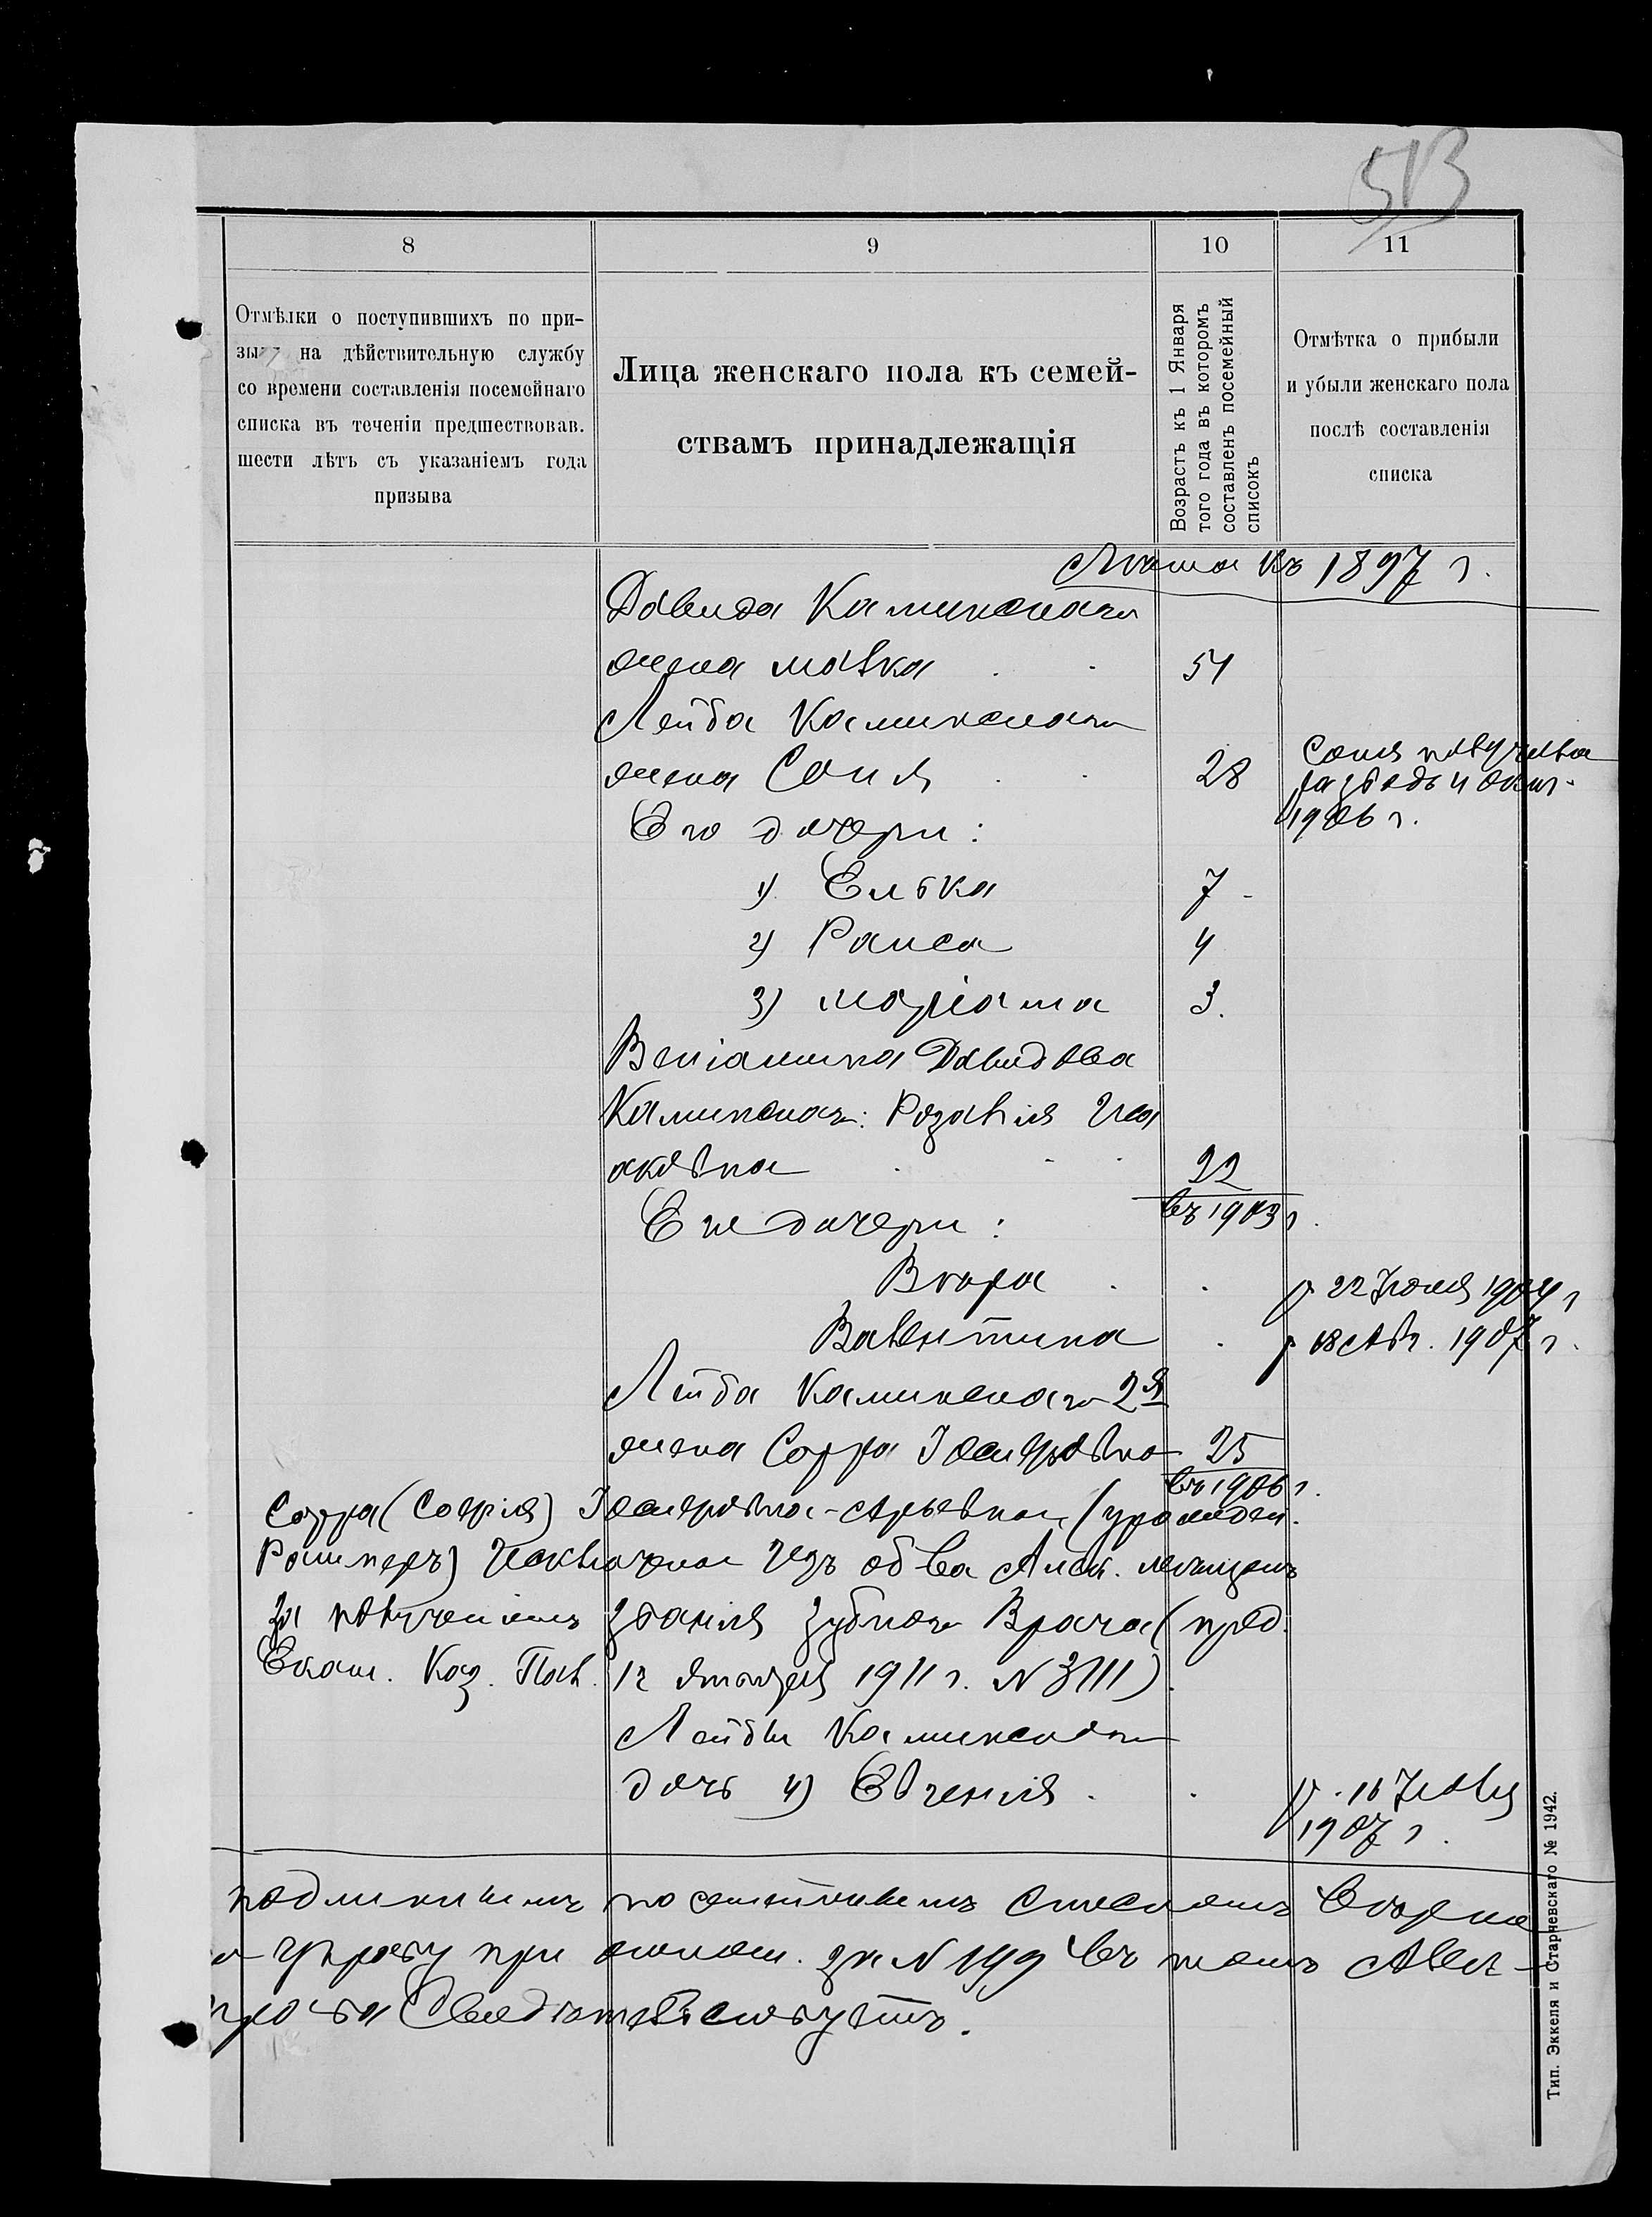 513
8
9
10
11
Отмѣлки о поступившихъ по при-
на дѣйствительную службу
со времени составленія посемейнаго
списка въ теченіи предшествовав.
шести лѣтъ съ указаніемъ года
призыва
Лица женскаго пола къ семей-
ствамъ принадлежащія
Возрастъ къ 1 Января
того года въ которомъ
составленъ посемейный
списокъ
Отмѣтка о прибыли
и убыли женскаго пола
послѣ составленія
списка
Лѣта къ 1897 г.
Давида Каминскаго
жена Малка 51
Лейба Каминскаго
жена Соня 28
Соня получила
разводъ 4 Окт.
1906 г.
Его дочери:
1) Елька 7
2) Раиса 4
3) Маріама 3.
Веніамина Давидова
Каминскаго: Розалія Иса
аковна 22
въ 1903 г.
Ея дочери:
р. 22 Іюля 1904 г
Валентина р 18 Авг. 1907 г.
Лейба Каминскаго 2я
жена Сорра 25
въ 1906 г.
Сорра (Софія) (урожден.
Исключена изъ об ва Алек. мещанъ
за полученіемъ званія Зубнаго Врача (пред.
Екат. Каз. Пал. 12 Января 1911 г. N 3111)
Лейбы Каминскаго
дочь 4) Евгенія р. 16
1907 г.
посемейнымъ спискомъ
при за N 199 въ томъ